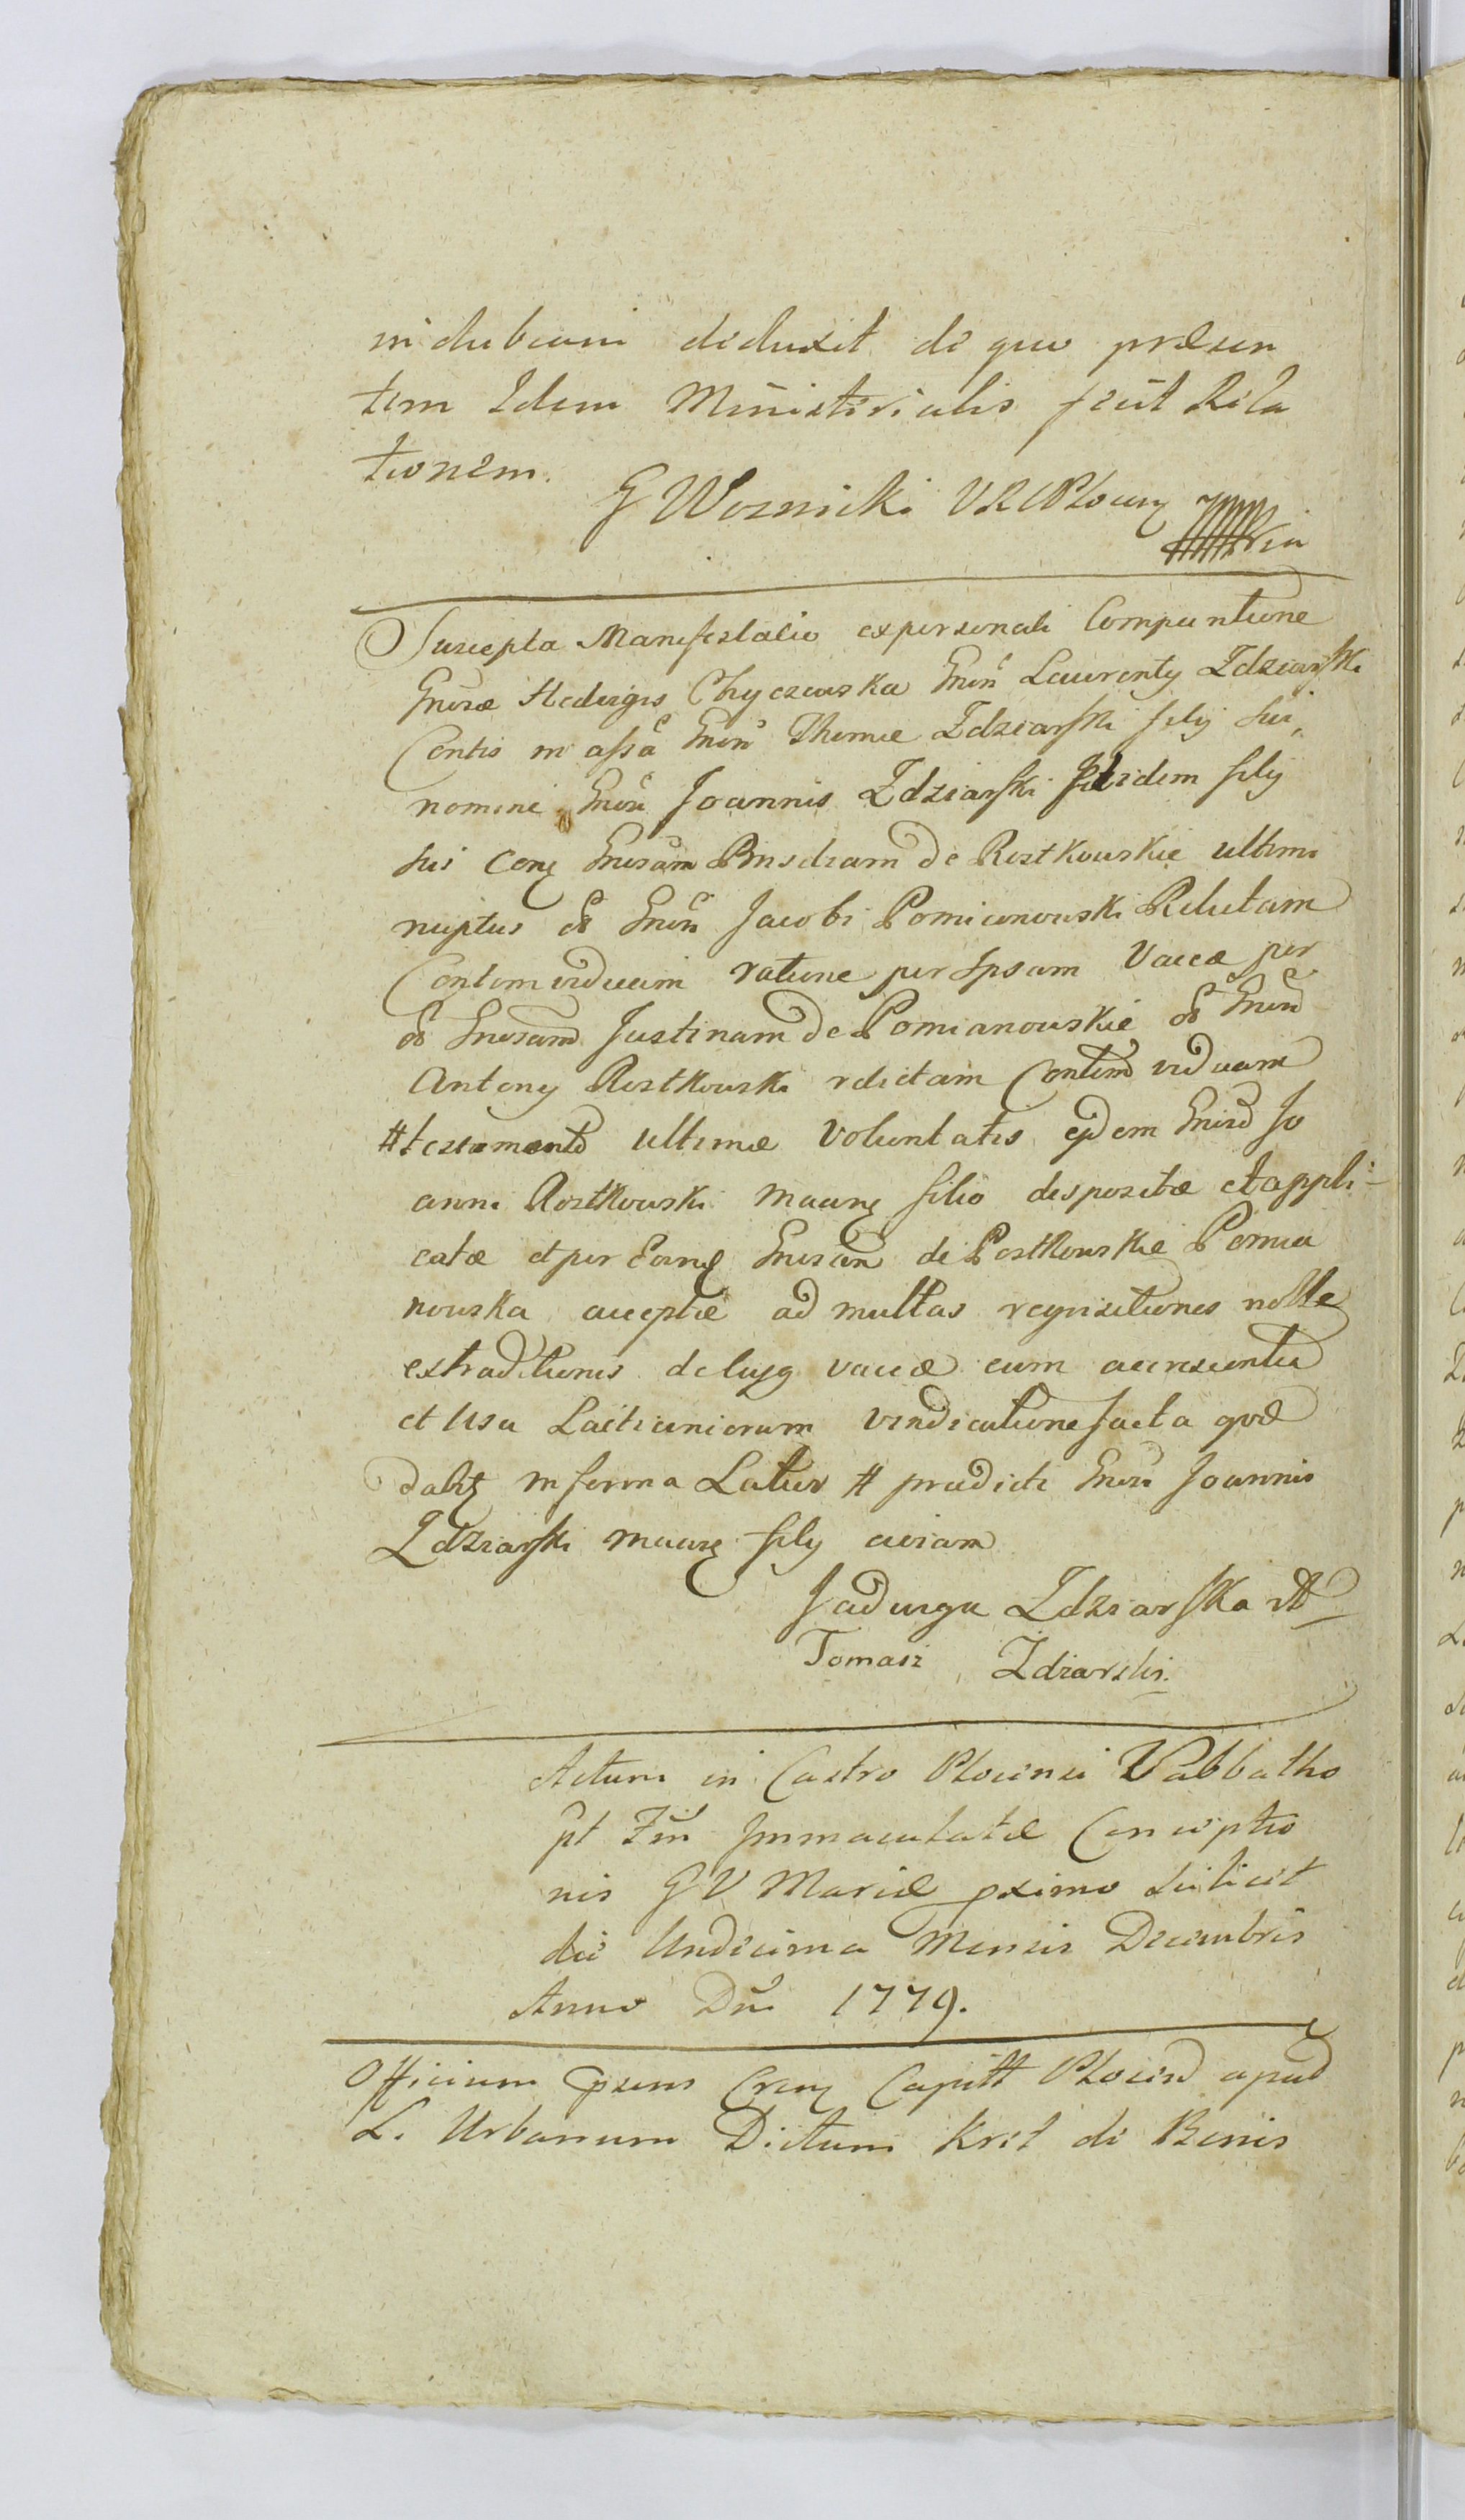 in dubium deduxit de quo præsen
tem Idem Ministerialis fecit Rela
tionem.
G Woznicki VRCPlocens
Suscepta Manifestatio ex personali Comparitione
Gnosæ Hedvigis Chyczewska Gnosi Laurenty Zdziarski
Contis in assa Gnosi Thomæ Zdziarski fily sui
nomine Gnosi Joannis Zdziarski itidem fily
sui Cong Gnosam de Rostkowskie ultimi
nuptus olim Gnosi Jacobi Pomianowski Relictam
Contem viduam ratione per Ipsam Vaccæ per
olim Gnosam Justinam de Pomianowskie olim Gnosi
Antony Rostkowski relictam Contem viduam
# testamento ultimæ Voluntatis ejdem Gnoso Jo
anni Rostkowski filio dispositæ et appli
catæ et per Gnosam de Rostkowskie Pomia
nowska acceptæ ad multas reqvisitiones nolle
extraditionis vaccæ cum accrescentia
et Usu Lacticiniorum vindicatione facta qvæ
dabit in forma Latior # prædicti Gnosi Joannis
Zdziarski fily aviam
Jadwiga Zdziarska
Tomasz Zdziarski.
Actum in Castro Plocensi Sabbatho
pt Fm Immaculatæ Conceptio
nis G V Mariæ pximo scilicet
die Undecima Mensis Decembris
Anno Dni 1779.
Officium psens Capitt Plocen apud
L. Urbanum Dictum Kret de Bonis